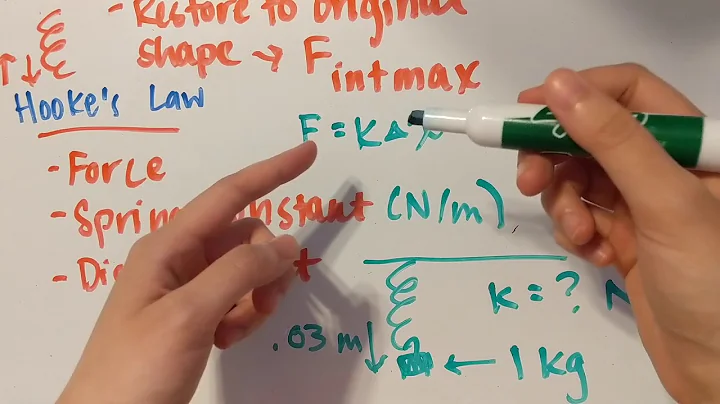 - Restore to original
shape → F int max
Hooke's Law
F = K Δ x
- Force
- Spring constant (N/m)
K = ?
.03 m
← 1 kg